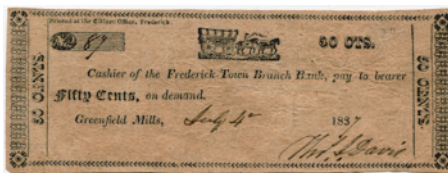 Printed at the Citizen Office, Frederick.
No. 87
50 CTS.
Cashier of the Frederick Town Branch Bank, pay to bearer
Fifty Cents, on demand.
Greenfield Mills, July 4th 1837
Tho. I. Davis
50 CENTS.
50 CENTS.